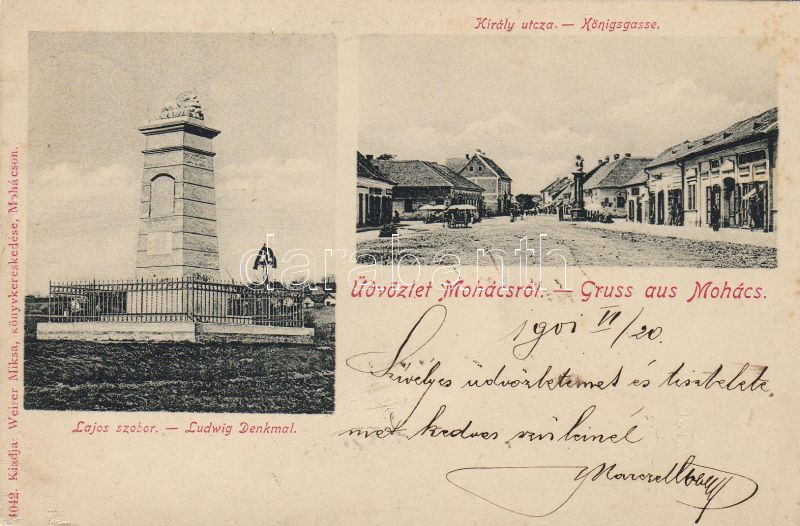 Király utcza. — Königsgasse.
Üdvözlet Mohácsról. — Gruss aus Mohács.
Lajos szobor. — Ludwig Denkmal.
4042. Kiadja: Weiser Miksa, könyvkereskedése, Mohácson.
darabanth
1901 VI/20
Szívélyes üdvözletemet és tisztelete-
met kedves szüleinél